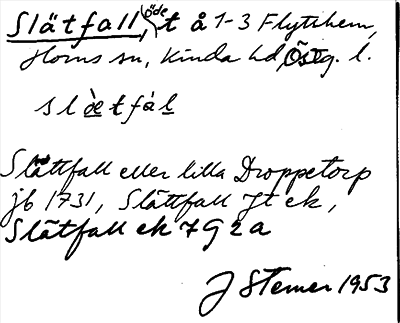 Slätfall, öde, t å 1-3 Flytthem,
Horns sn, Kinda hd, Östg. l.
slètfàl
Slättfall eller lilla Droppetorp
jb 1731, Slättfall Jt ek,
Slätfall ek 7G2a
J Stemer 1953